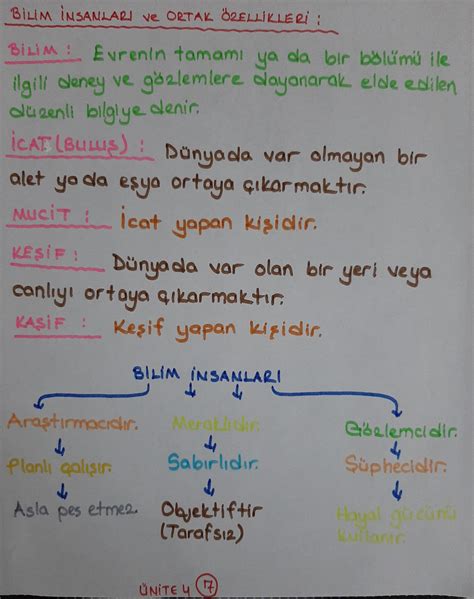 BİLİM İNSANLARI ve ORTAK ÖZELLİKLERİ :
BİLİM : Evrenin tamamı ya da bir bölümü ile
ilgili deney ve gözlemlere dayanarak elde edilen
düzenli bilgiye denir.
İCAT (BULUŞ) : Dünyada var olmayan bir
alet yada eşya ortaya çıkarmaktır.
MUCİT : İcat yapan kişidir.
KEŞİF : Dünyada var olan bir yeri veya
canlıyı ortaya çıkarmaktır.
KAŞİF : Keşif yapan kişidir.
BİLİM İNSANLARI
Araştırmacıdır. Meraklıdır. Gözlemcidir.
Planlı çalışır. Sabırlıdır. Şüphecidir.
Asla pes etmez. Objektiftir Hayal gücünü
(Tarafsız) kullanır.
ÜNİTE 4 17